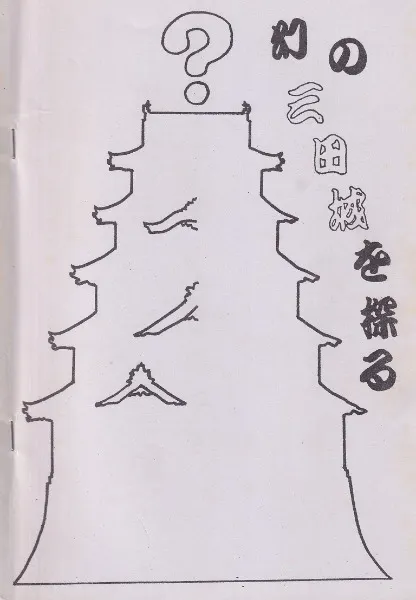 ?
幻の
三田城
を探る